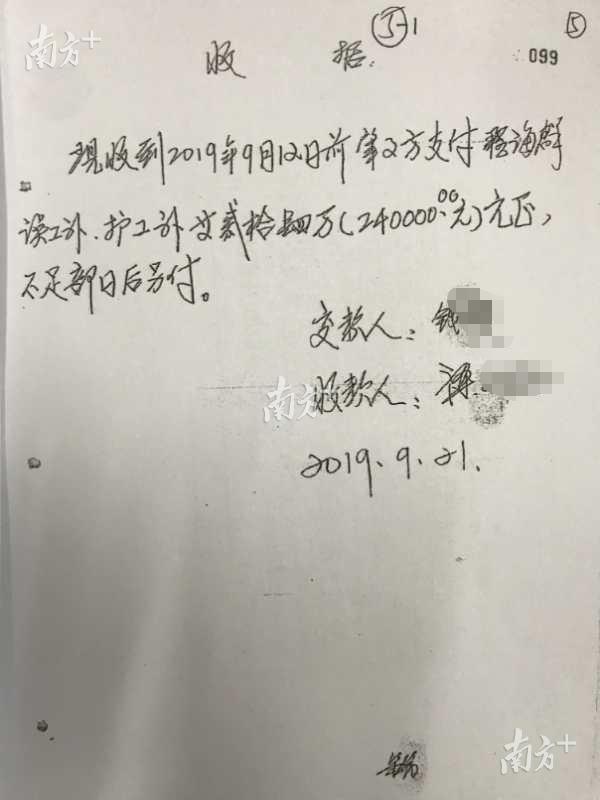 南方+
⑤-1
⑤
收 据:
099
现收到2019年9月12日前肇事方支付程海群
误工补、护工补贰拾四万(240000.00元)元正,
不足部日后另付。
交款人: 钱
南方+
收款人:
2019.9.21.
南方+